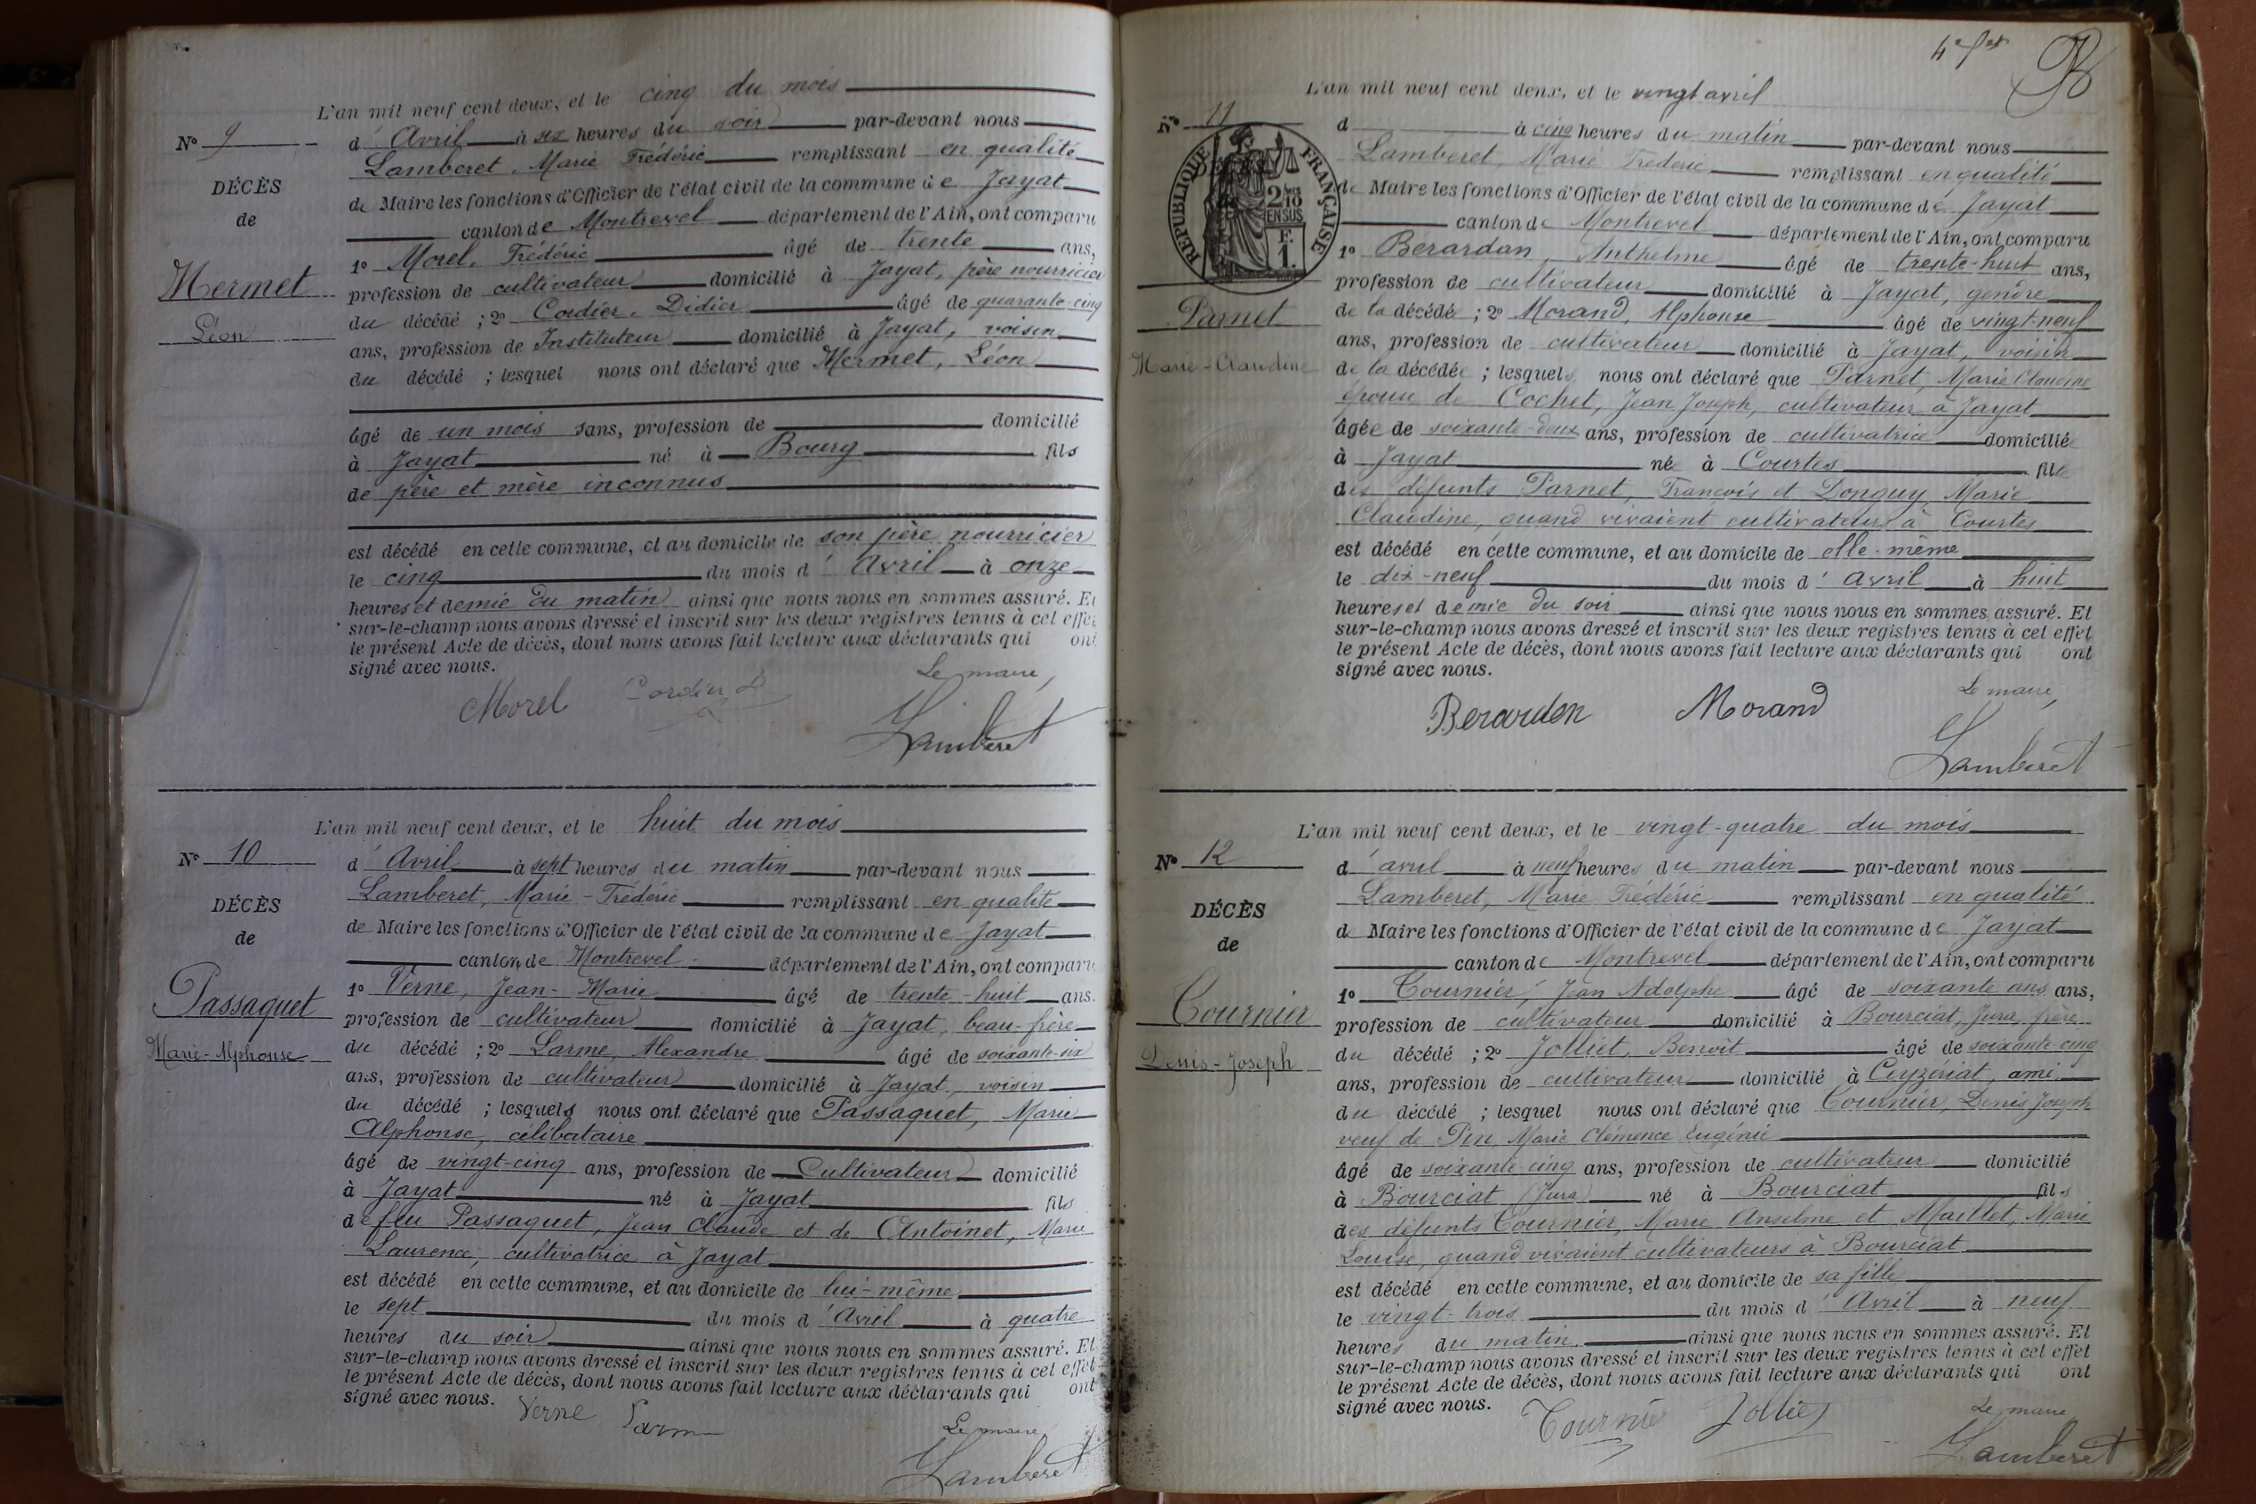 L'an mil neuf cent deux, et le cinq du mois
N° 9
d'Avril à six heures du soir par-devant nous
Lamberet, Marie Frédéric remplissant en qualité
DÉCÈS
de Maire les fonctions d'Officier de l'état civil de la commune de Jayat
de
canton de Montrevel département de l'Ain, ont comparu
1° Morel, Frédéric âgé de trente ans,
Mermet
profession de cultivateur domicilié à Jayat, père nourricier
Léon
du décédé ; 2° Cordier, Didier âgé de quarante-cinq
ans, profession de Instituteur domicilié à Jayat, voisin
du décédé ; lesquel nous ont déclaré que Mermet, Léon
âgé de un mois sans, profession de domicilié
à Jayat né à Bourg fils
de père et mère inconnus
est décédé en cette commune, et au domicile de son père nourricier
le cinq du mois d'Avril à onze
heures et demie du matin ainsi que nous nous en sommes assuré. Et
sur-le-champ nous avons dressé et inscrit sur les deux registres tenus à cet effet
le présent Acte de décès, dont nous avons fait lecture aux déclarants qui ont
signé avec nous.
Le maire,
Morel Cordier D
Lamberet
L'an mil neuf cent deux, et le huit du mois
N° 10
d'Avril à sept heures du matin par-devant nous
Lamberet, Marie-Frédéric remplissant en qualité
DÉCÈS
de Maire les fonctions d'Officier de l'état civil de la commune de Jayat
de
canton de Montrevel département de l'Ain, ont comparu
1° Verne, Jean-Marie âgé de trente-huit ans.
Passaquet
profession de cultivateur domicilié à Jayat, beau-frère
Marie-Alphonse
du décédé ; 2° Larme, Alexandre âgé de soixante-six
ans, profession de cultivateur domicilié à Jayat, voisin
du décédé ; lesquels nous ont déclaré que Passaquet, Marie
Alphonse, célibataire
âgé de vingt-cinq ans, profession de Cultivateur domicilié
à Jayat né à Jayat fils
de feu Passaquet, Jean Claude et de Antoinet, Marie
Laurence, cultivatrice à Jayat
est décédé en cette commune, et au domicile de lui-même
le sept du mois d'Avril à quatre
heures du soir ainsi que nous nous en sommes assuré. Et
sur-le-champ nous avons dressé et inscrit sur les deux registres tenus à cet effet
le présent Acte de décès, dont nous avons fait lecture aux déclarants qui ont
signé avec nous.
Verne Larme
Le maire
Lamberet
L'an mil neuf cent deux, et le vingt avril
N° 11
d à cinq heures du matin par-devant nous
Lamberet, Marie Frédéric remplissant en qualité
RÉPUBLIQUE FRANÇAISE
2/10 EN SUS
F. 1.
de Maire les fonctions d'Officier de l'état civil de la commune de Jayat
canton de Montrevel département de l'Ain, ont comparu
1° Bérardan, Anthelme âgé de trente-huit ans,
profession de cultivateur domicilié à Jayat, gendre
Parnet
de la décédé ; 2° Morand, Alphonse âgé de vingt-neuf
ans, profession de cultivateur domicilié à Jayat, voisin
Marie-Claudine
de la décédée ; lesquels nous ont déclaré que Parnet, Marie Claudine
épouse de Cochet, Jean Joseph, cultivateur à Jayat
âgée de soixante-deux ans, profession de cultivatrice domiciliée
à Jayat née à Courtes fille
des défunts Parnet, François et Donguy Marie
Claudine, quand vivaient cultivateurs à Courtes
est décédé en cette commune, et au domicile de elle-même
le dix-neuf du mois d'avril à huit
heures et demie du soir ainsi que nous nous en sommes assuré. Et
sur-le-champ nous avons dressé et inscrit sur les deux registres tenus à cet effet
le présent Acte de décès, dont nous avons fait lecture aux déclarants qui ont
signé avec nous.
Le maire,
Berardan Morand
Lamberet
L'an mil neuf cent deux, et le vingt-quatre du mois
N° 12
d'avril à neuf heures du matin par-devant nous
Lamberet, Marie Frédéric remplissant en qualité
DÉCÈS
de Maire les fonctions d'Officier de l'état civil de la commune de Jayat
de
canton de Montrevel département de l'Ain, ont comparu
1° Tournier, Jean Adolphe âgé de soixante ans ans,
Tournier
profession de cultivateur domicilié à Bourciat, Jura, frère
Denis-Joseph
du décédé ; 2° Jolliet, Benoît âgé de soixante cinq
ans, profession de cultivateur domicilié à Ceyzériat, ami
du décédé ; lesquel nous ont déclaré que Tournier, Denis Joseph
veuf de Pin Marie Clémence Eugénie
âgé de soixante-cinq ans, profession de cultivateur domicilié
à Bourciat (Jura) né à Bourciat fils
des défunts Tournier, Marie Anselme et Maillet, Marie
Louise, quand vivaient cultivateurs à Bourciat
est décédé en cette commune, et au domicile de sa fille
le vingt-trois du mois d'Avril à neuf
heures du matin ainsi que nous nous en sommes assuré. Et
sur-le-champ nous avons dressé et inscrit sur les deux registres tenus à cet effet
le présent Acte de décès, dont nous avons fait lecture aux déclarants qui ont
signé avec nous.
Tournier Jolliet
Le maire
Lamberet